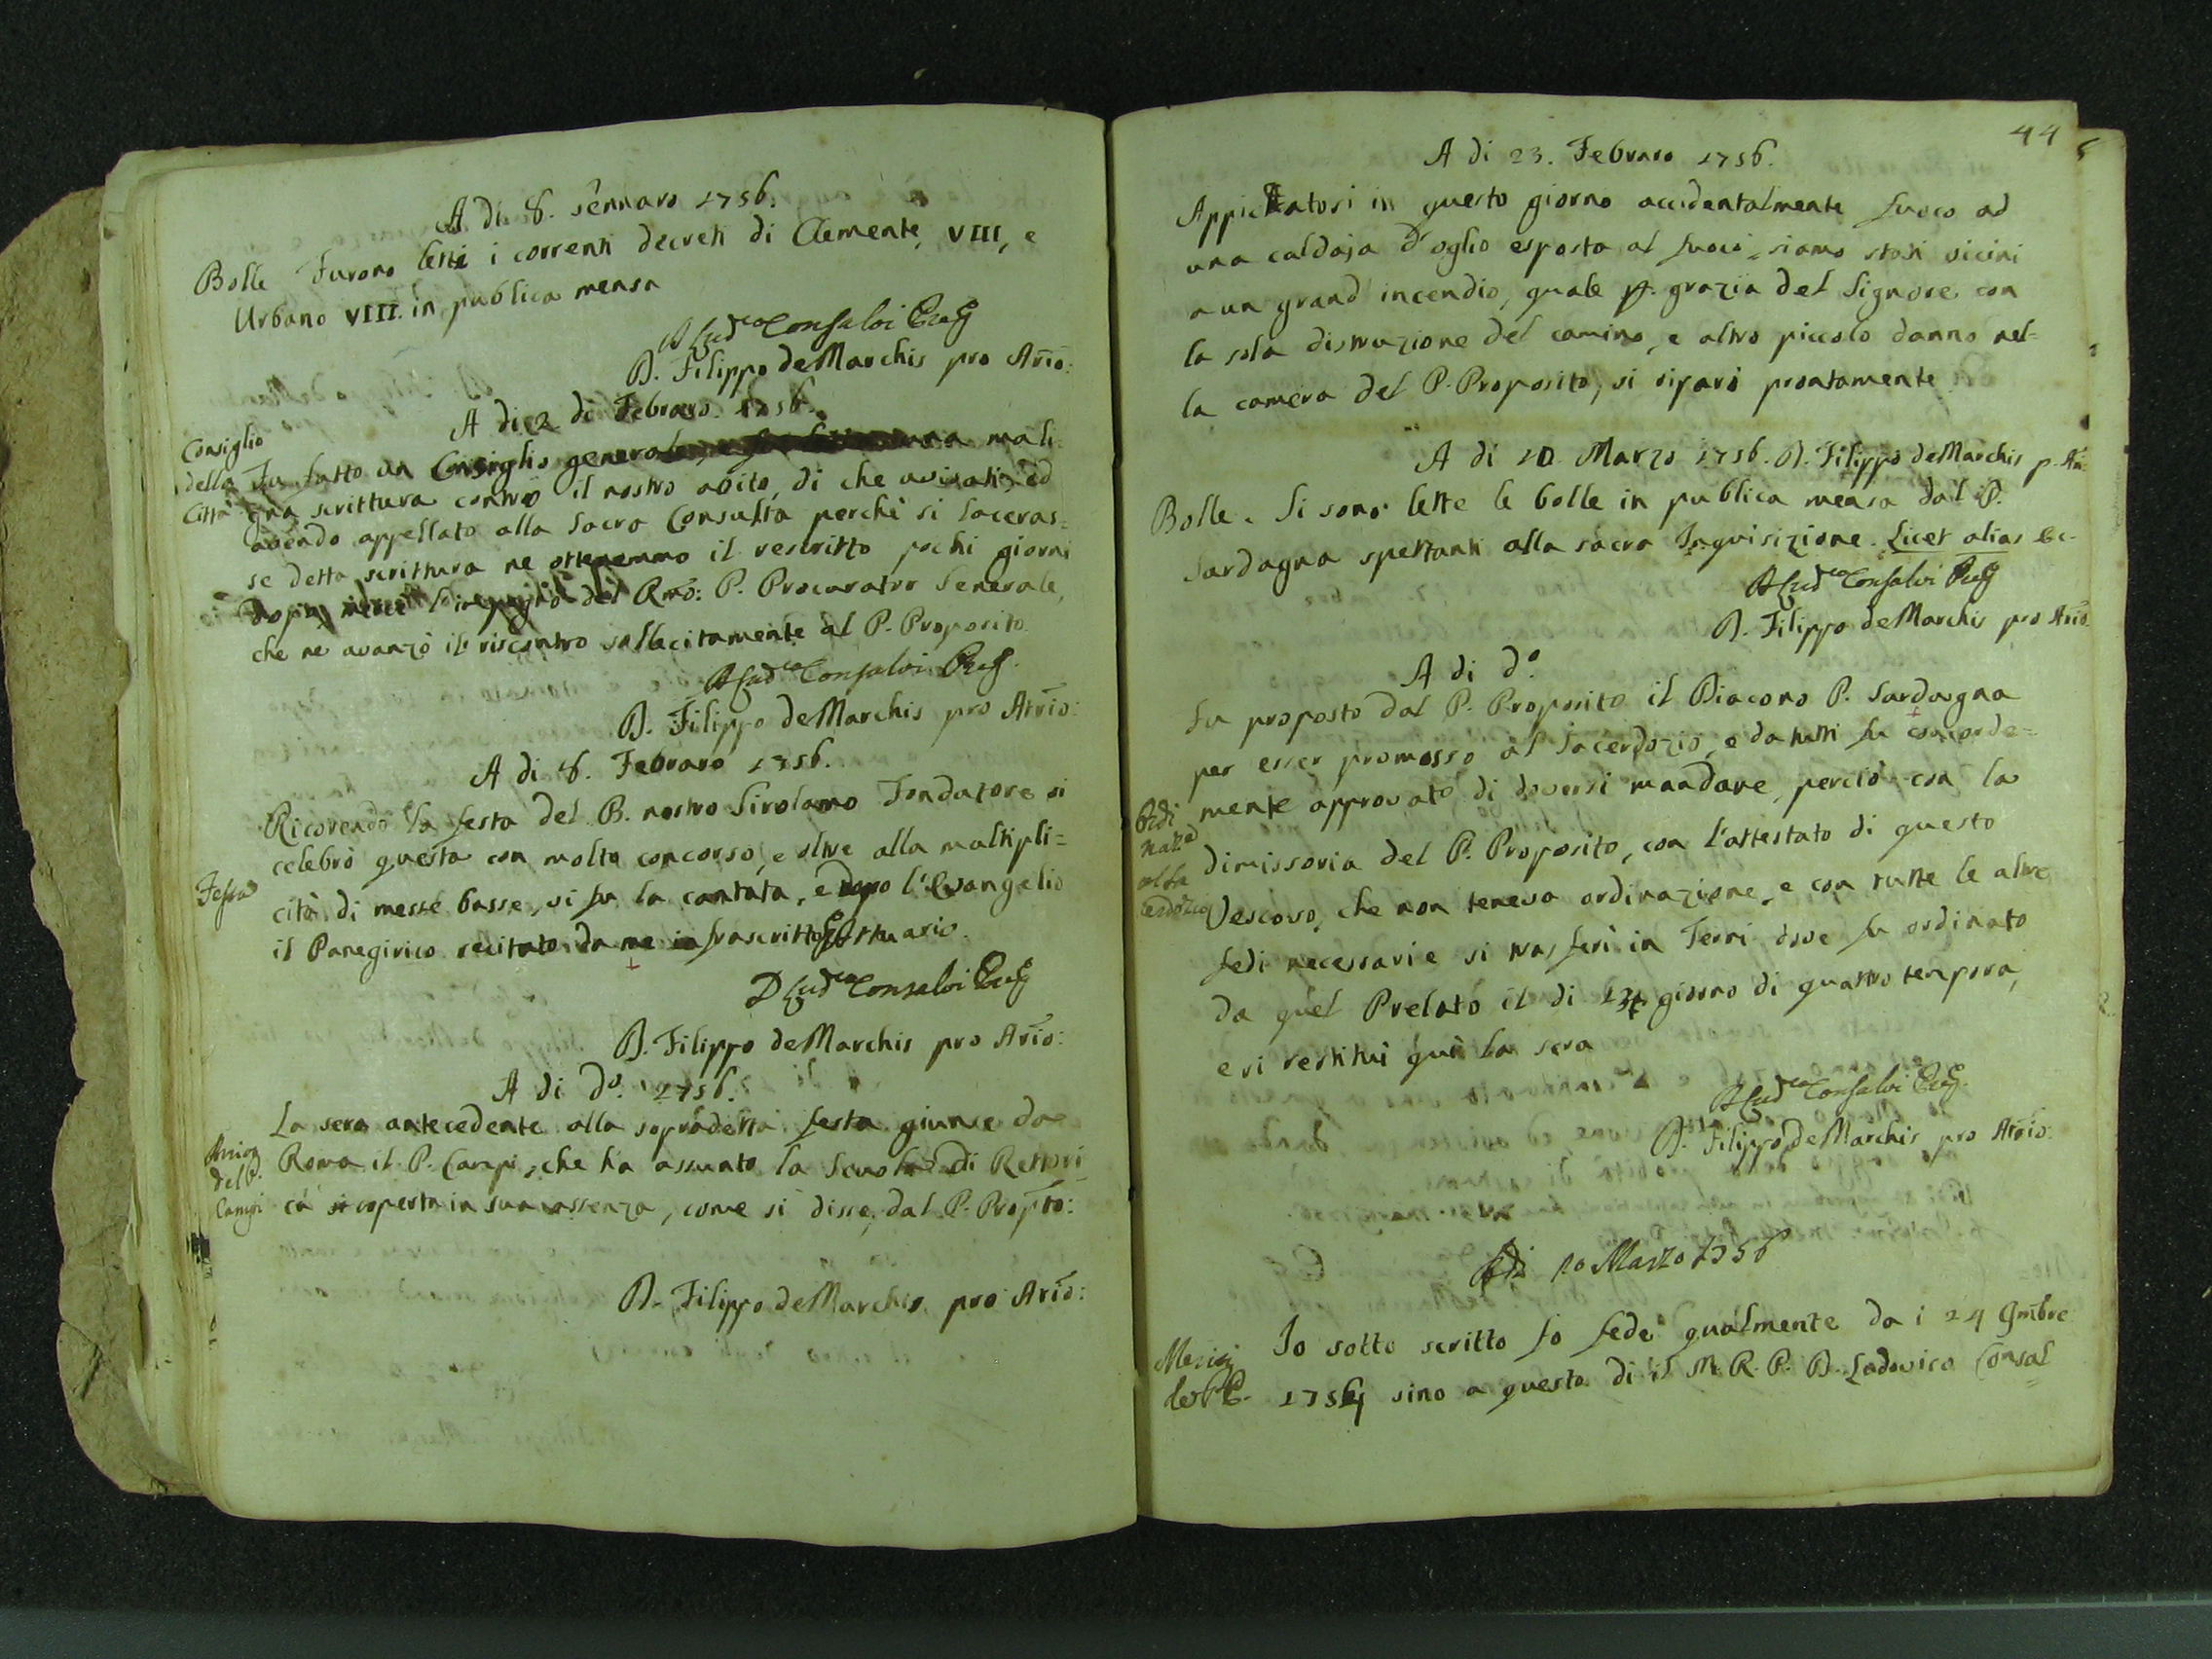 A di 8. Gennaro 1756.
Bolle Furono letti i correnti decreti di Clemente VIII, e
Urbano VIII. in publica mensa
D Lud.co Consalvi
D. Filippo de Marchis pro Att.rio:
A di 2 di Febraro. 1756.
Consiglio
della
Città
Fu fatto un Consiglio generale, mali
gna scrittura contro il nostro abito, di che avisati, ed
avendo appellato alla Sacra Consulta perchè si laceras=
se detta scrittura ne ottenemmo il rescritto pochi giorni
dopo, mercè l'impegno del Rmo: P. Procurator Generale,
che ne avanzò il riscontro sollecitamente al P. Proposito.
D Lud.co Consalvi
D. Filippo de Marchis pro Att.rio:
A di 8. Febraro 1756.
Festa
Ricorendo la festa del B. nostro Girolamo Fondatore si
celebrò questa con molto concorso, e oltre alla moltipli=
cità di messe basse, vi fu la cantata, e dopo l'Evangelio
il Panegirico recitato da me infrascritto Attuario.
D Lud.co Consalvi
D. Filippo de Marchis pro Att.rio:
A di do. 1756.
Arrivo
del P.
Campi
La sera antecedente alla sopradetta festa giunse da
Roma il P. Campi, che ha assunto la Scuola di Rettori
ca ricoperta in sua assenza, come si disse, dal P. Propto:
D. Filippo de Marchis pro Att.rio:
44
A di 23. Febraro 1756.
Appicciatosi in questo giorno accidentalmente fuoco ad
una caldaja d'oglio esposta al fuoco, siamo stati vicini
a un grand' incendio, quale p. grazia del Signore con
la sola distruzione del camino, e altro piccolo danno nel=
la camera del P. Proposito, si riparò prontamente
A di 10 Marzo 1756. D. Filippo de Marchis p. Att.
Bolle. Si sono lette le bolle in publica mensa dal P.
Sardagna spettanti alla sacra Inquisizione. Licet alias &c.
D Lud.co Consalvi
D. Filippo de Marchis pro Att.rio
A di do
Fu proposto dal P. Proposito il Diacono P. Sardagna
per esser promosso al Sacerdozio, e da tutti fu concorde=
mente approvato di doversi mandare, perciò con la
dimissoria del P. Proposito, con l'attestato di questo
Vescovo, che non teneva ordinazione, e con tutte le altre
fedi necessarie si trasferì in Terni dove fu ordinato
da quel Prelato il di 13 giorno di quattro tempora,
e si restituì quì la sera
D Lud.co Consalvi
D. Filippo de Marchis pro Att.rio:
Adi 20 Marzo 1756
Io sotto scritto fo fede qualmente da i 24 9mbre
1754 sino a questo di il M. R. P. D. Lodovico Consal
=